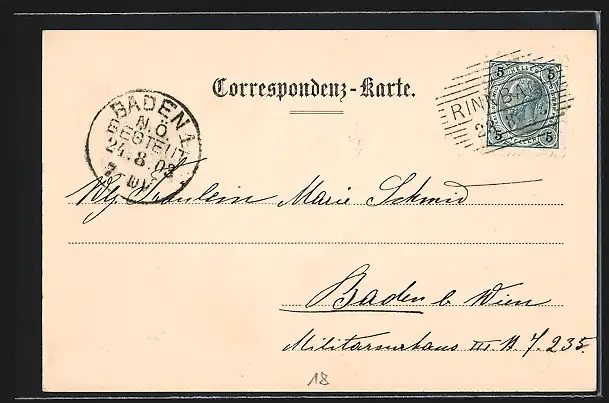 Correspondenz-Karte.
5 5
RINNBA
5 5
BADEN 1
N.Ö.
BESTELLT
24.8.03
7
Fräulein Marie Schmid
Baden b. Wien
Militärkurhaus III. N 235.
18